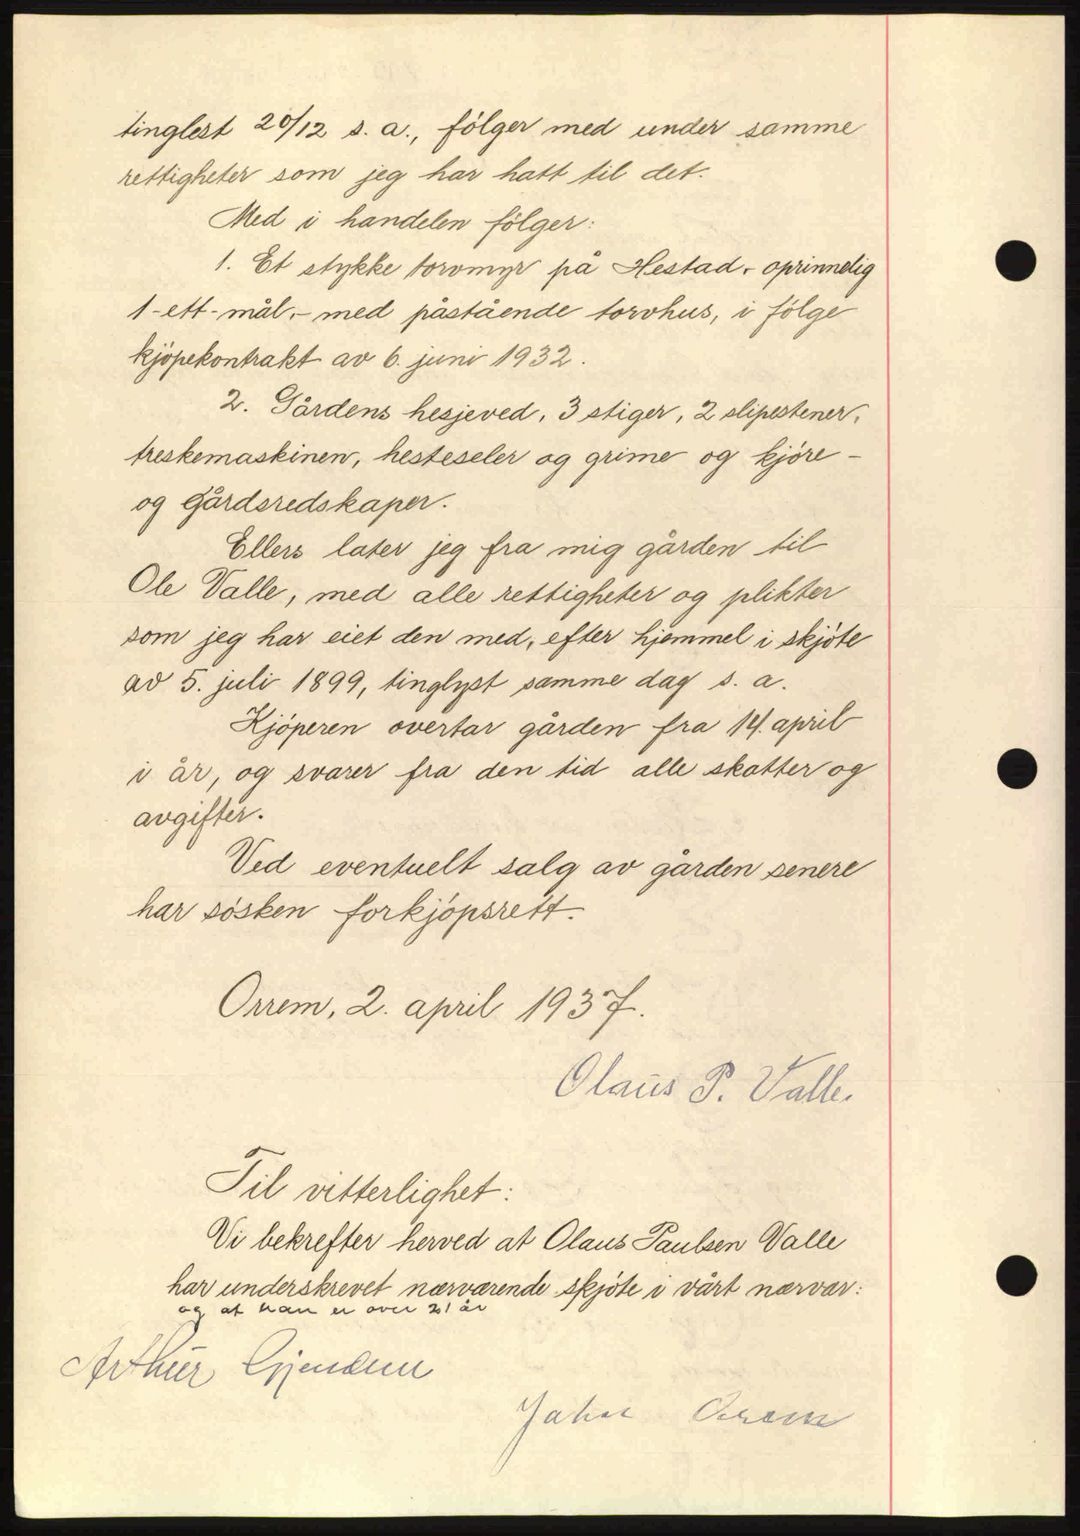 tinglest 20/12 s. a., fölger med under samme
rettigheter som jeg har hatt til det.
Med i handelen fölger:
1. Et stykke torvmyr på Hestad - oprinnelig
1 - ett - mål, - med påstående torvhus, i fölge
kjöpekontrakt av 6. juni 1932.
2. Gårdens hesjeved, 3 stiger, 2 slipestener,
treskemaskinen, hesteseler og grime og kjöre-
og gårdsredskaper.
Ellers later jeg fra mig gården til
Ole Valle, med alle rettigheter og plikter
som jeg har eiet den med, efter hjemmel i skjöte
av 5. juli 1899, tinglyst samme dag s. a.
Kjöperen overtar gården fra 14. april
i år, og svarer fra den tid alle skatter og
avgifter.
Ved eventuelt salg av gården senere
har sösken forkjöpsrett.
Orrem, 2. april 1937.
Olaus P. Valle.
Til vitterlighet:
Vi bekrefter herved at Olaus Paulsen Valle
har underskrevet nærværende skjöte i vårt nærvær:
og at han er over 21 år
Arthur Gjendem